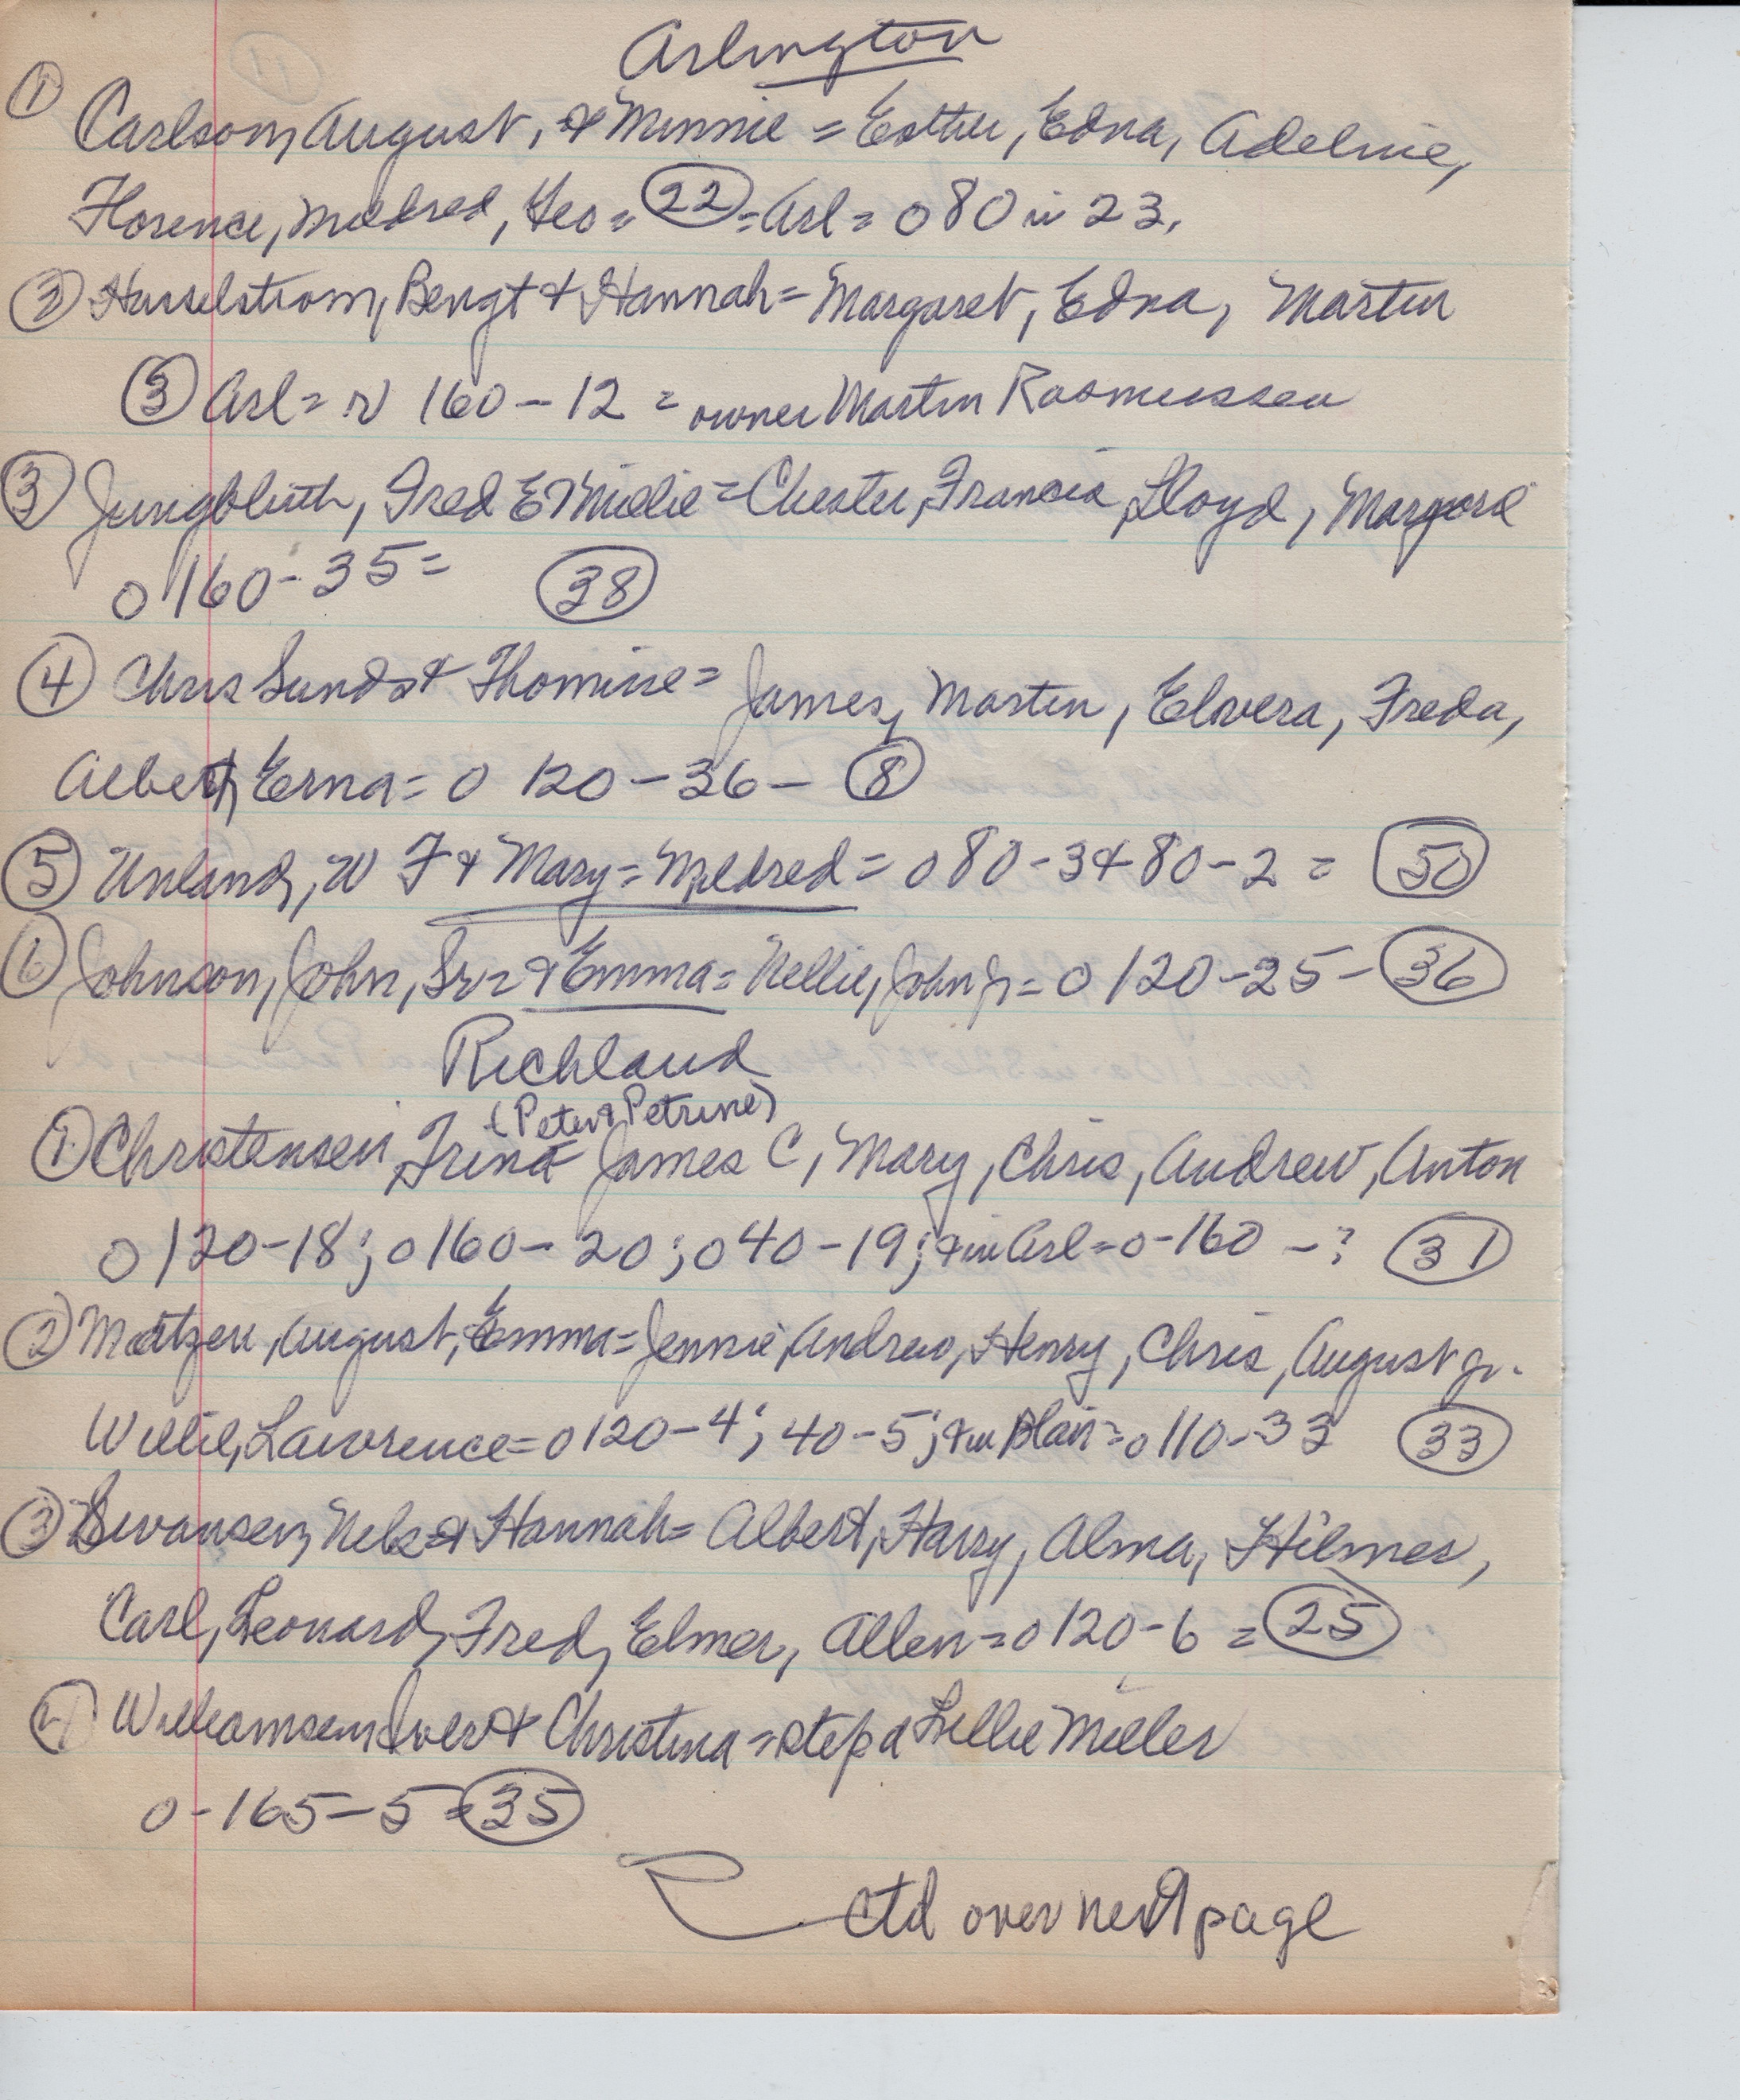 11
Arlington
① Carlson, August, & Minnie = Esther, Edna, Adeline,
Florence, Mildred, Geo = 22 = Arl = 0 80 in 23.
② Hasselstrom, Bengt & Hannah = Margaret, Edna, Martin
③ Arl = r 160 - 12 = owner Martin Rasmussen
③ Jungbluth, Fred E & Millie = Chester, Francis, Lloyd, Margorie
0 160 - 35 = 38
④ Chris Sunds & Thomine = James, Martin, Elvera, Freda,
Albert, Erna = 0 120 - 36 - 8
⑤ Unland, W F & Mary = Mildred = 0 80 - 3 & 80 - 2 = 50
⑥ Johnson, John, Sr = & Emma = Nellie, John Jr = 0 120 - 25 - 36
Richland
(Peter & Petrine)
① Christensen, Trina James C, Mary, Chris, Andrew, Anton
0 120 - 18; 0 160 - 20; 0 40 - 19; & in Arl = 0 - 160 - ? 31
② Matzen, August, Emma = Jennie, Andrew, Henry, Chris, August Jr.
Willie, Lawrence = 0 120 - 4; 40 - 5; & in Blair = 0 110 - 33 33
③ Swansen, Nels & Hannah = Albert, Harry, Alma, Hilmer,
Carl, Leonard, Fred, Elmer, Allen = 0 120 - 6 = 25
④ Williamsen, Iver & Christina = step d Lillie Miller
0 - 165 - 5 = 35
ctd over next page